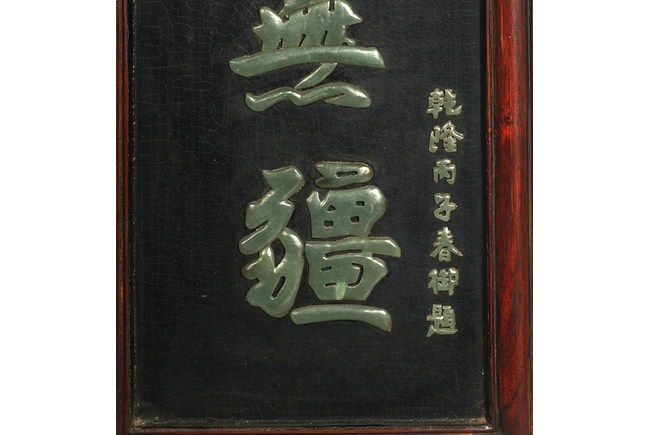 乾隆丙子春御題
無疆